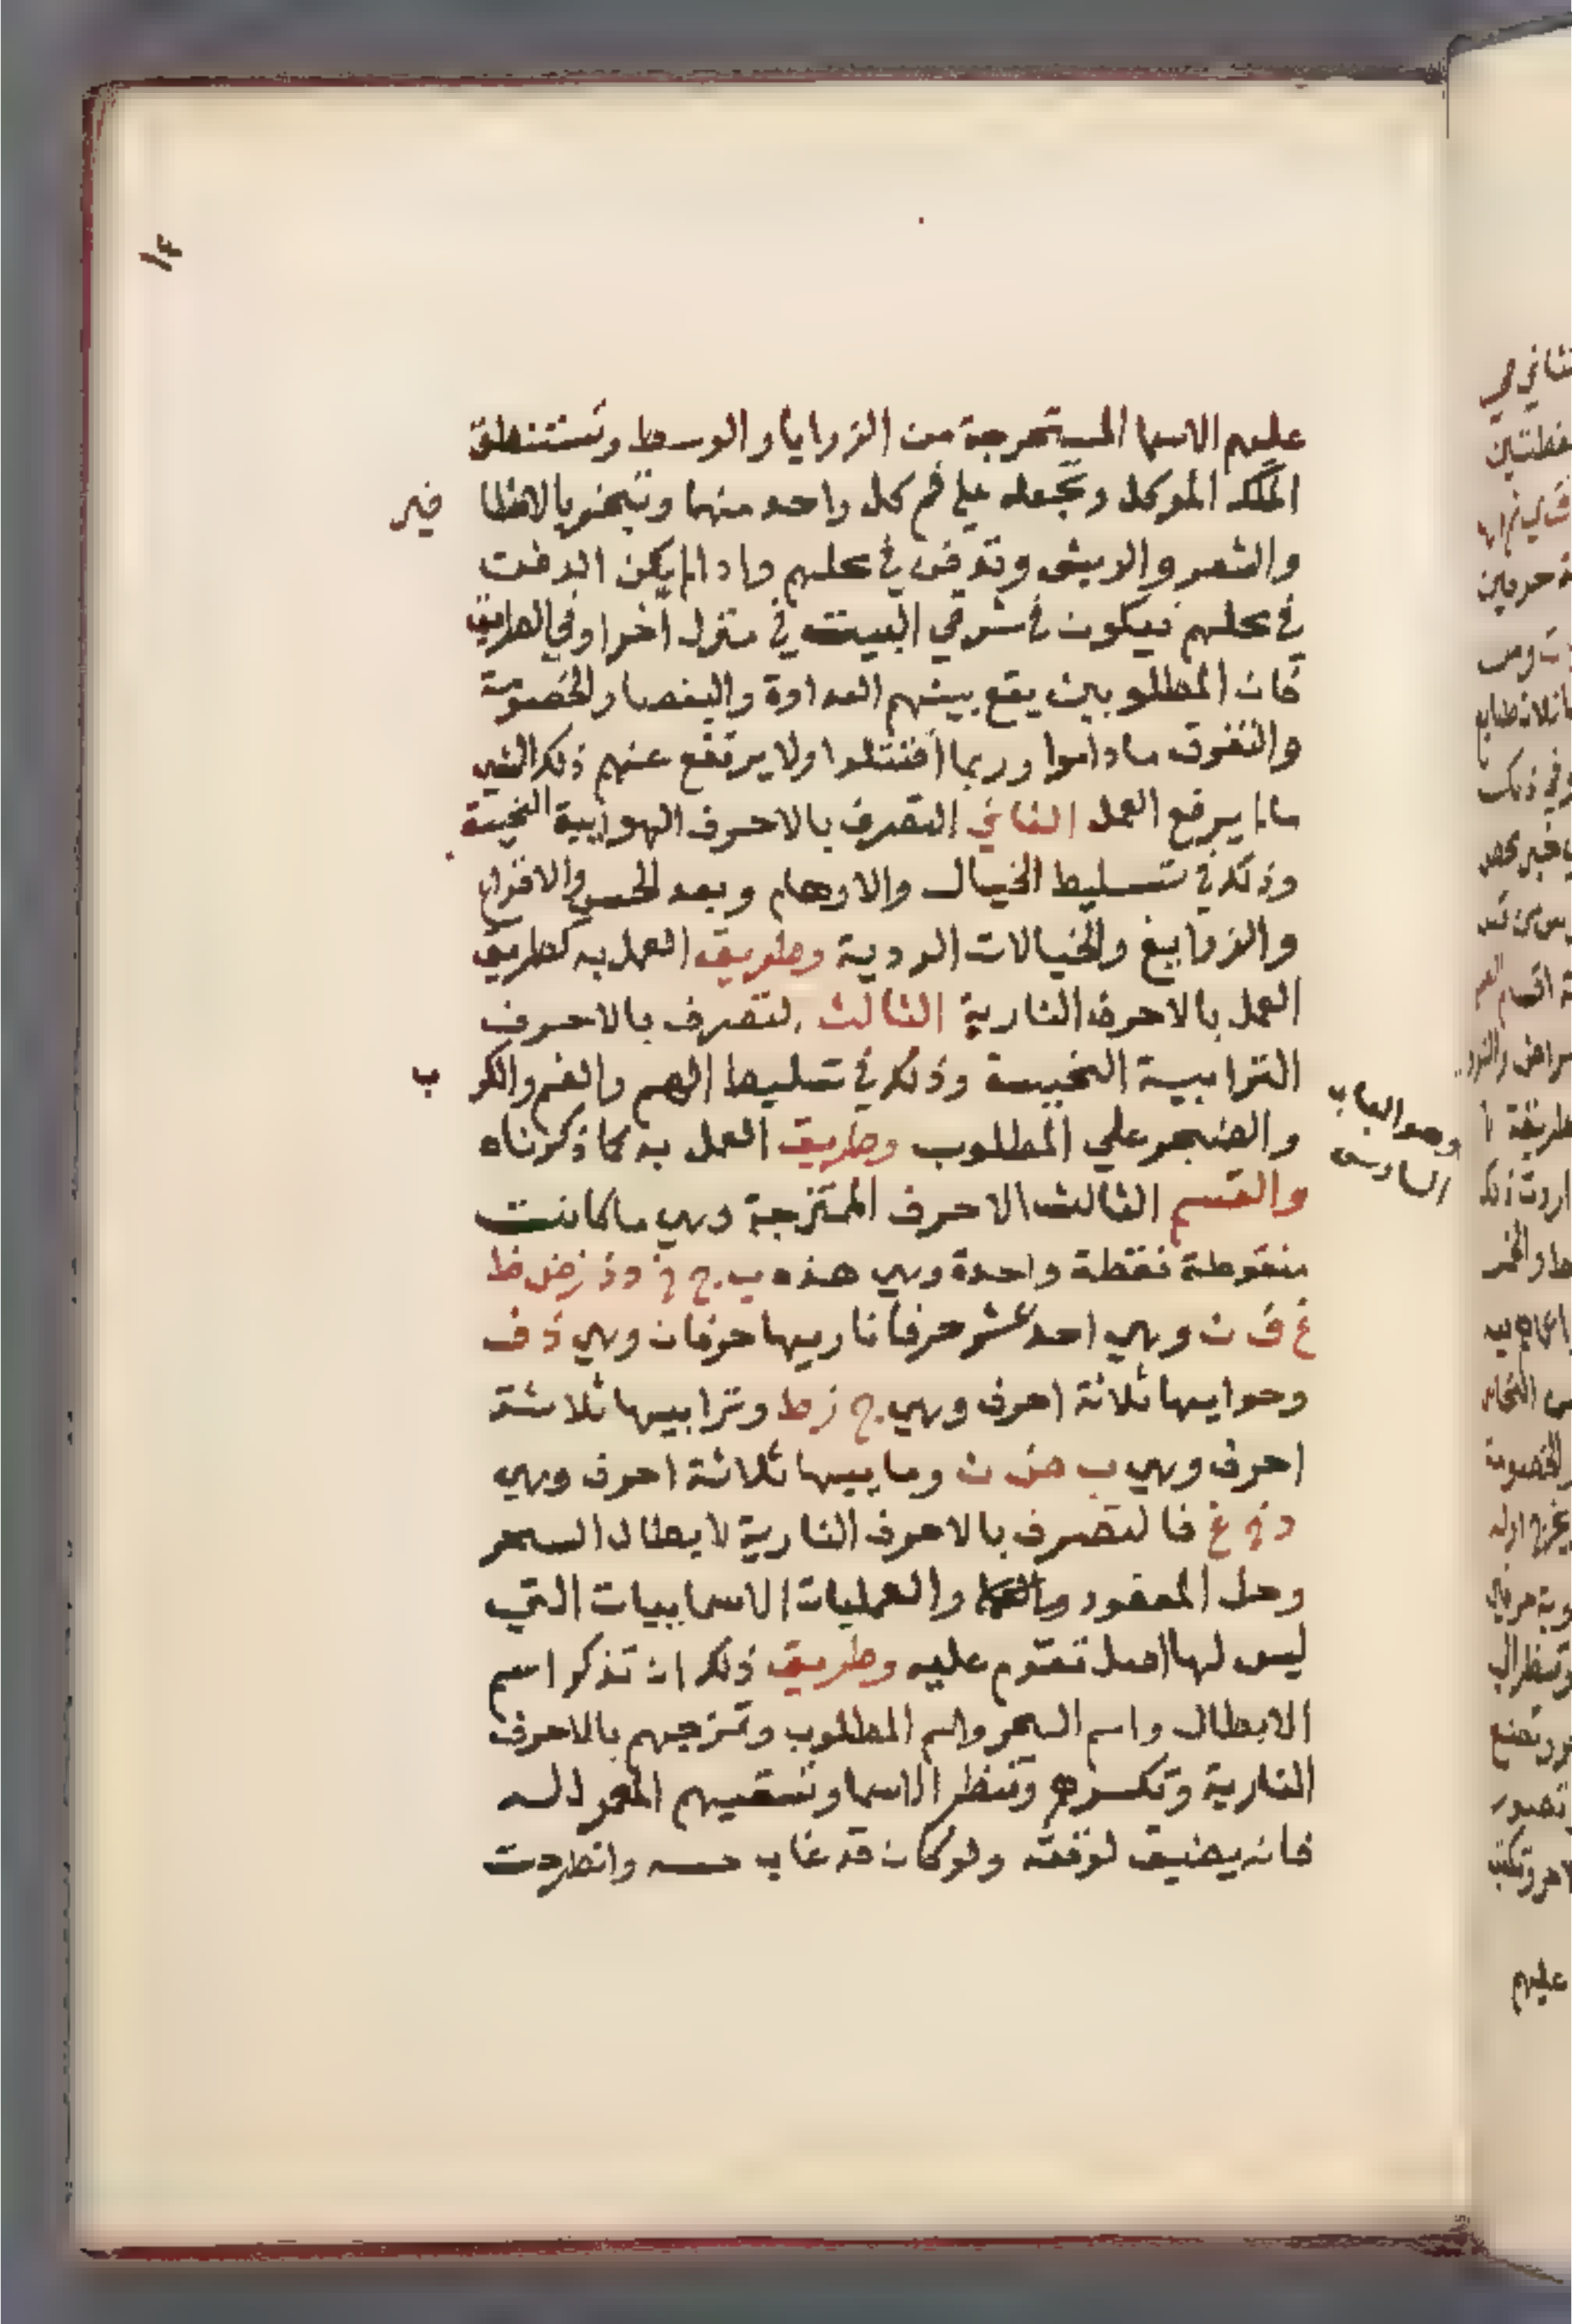 ١٤
عليهم الاسما المستخرجة من الزوايا والوسط وتستنطق
الملك الموكل وتجعله علي فم كل واحد منهما وتبخر بالاظا
فير
والشعر والريش وتدفن في محلهم واذا لم يكن الدفن
في محلهم فيكون في شرقي البيت في منزل آخر او في الطريق
فان المطلوبين يقع بينهم العداوة والبغضا والخصومة
والتفرق ماداموا وربما أقتتلوا ولا يرتفع عنهم ذلك الشي
مالم يرفع العمل الثاني التصرف بالاحرف الهوايية النحيسة
وذلك في تسليط الخيال والاوهام وبعد الحس والاقوام
والزرابيغ والخيالات الردية وطريق العمل به كطريق
العمل بالاحرف النارية الثالث التصرف بالاحرف
الترابية النحيسة وذلك في تسليط الهم والغم والكر
ب
وهو الباب
السادس
والضجر علي المطلوب وطريق العمل به كما ذكرناه
والقسم الثالث الاحرف الممتزجة وهي ماكانت
منقوطة نقطة واحدة وهي هذه ب ج خ د ذ ز ض ظ
غ ف ن وهي احد عشر حرفا ناريها حرفان وهي ذ ف
وهوايها ثلاثة احرف وهي ج ز ظ وترابيها ثلاثة
احرف وهي ب ض ن وماييها ثلاثة احرف وهي
د خ غ فالتصرف بالاحرف النارية لابطال السحر
وحل المعقود والعمليات الاسماييات التي
ليس لها اصل تقوم عليه وطريق ذلك ان تذكر اسم
الابطال واسم السحر واسم المطلوب وتمزجهم بالاحرف
النارية وتكسرهم وتنظر الاسما وتسقيهم المعمول له
فانه يضيق لوقته ولو كان قد غاب حسه وانطرحت